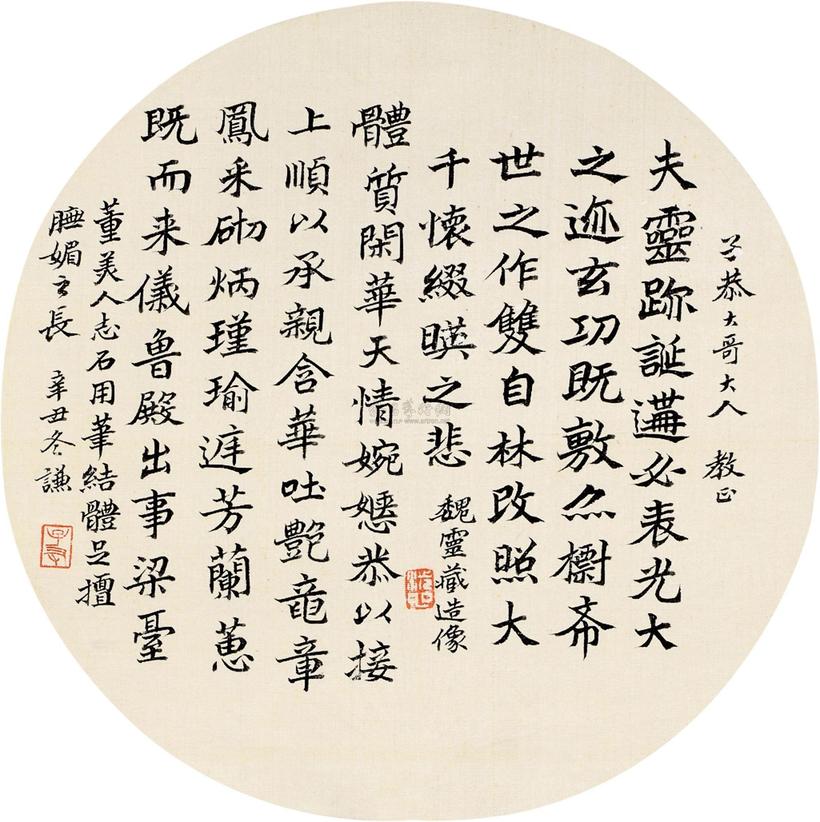 恭大哥大人 教正
夫靈跡誕遘必表光大
之迹玄功既敷亦樹希
世之作雙自林改照大
千懷綴暎之悲
魏靈藏造像
體質閑華天情婉嫕恭以接
上順以承親含華吐艷竜章
鳳采砌炳瑾瑜庭芳蘭蕙
既而来儀魯殿出事梁臺
董美人志石用筆結體足擅
腴媚之長 辛丑冬 謙